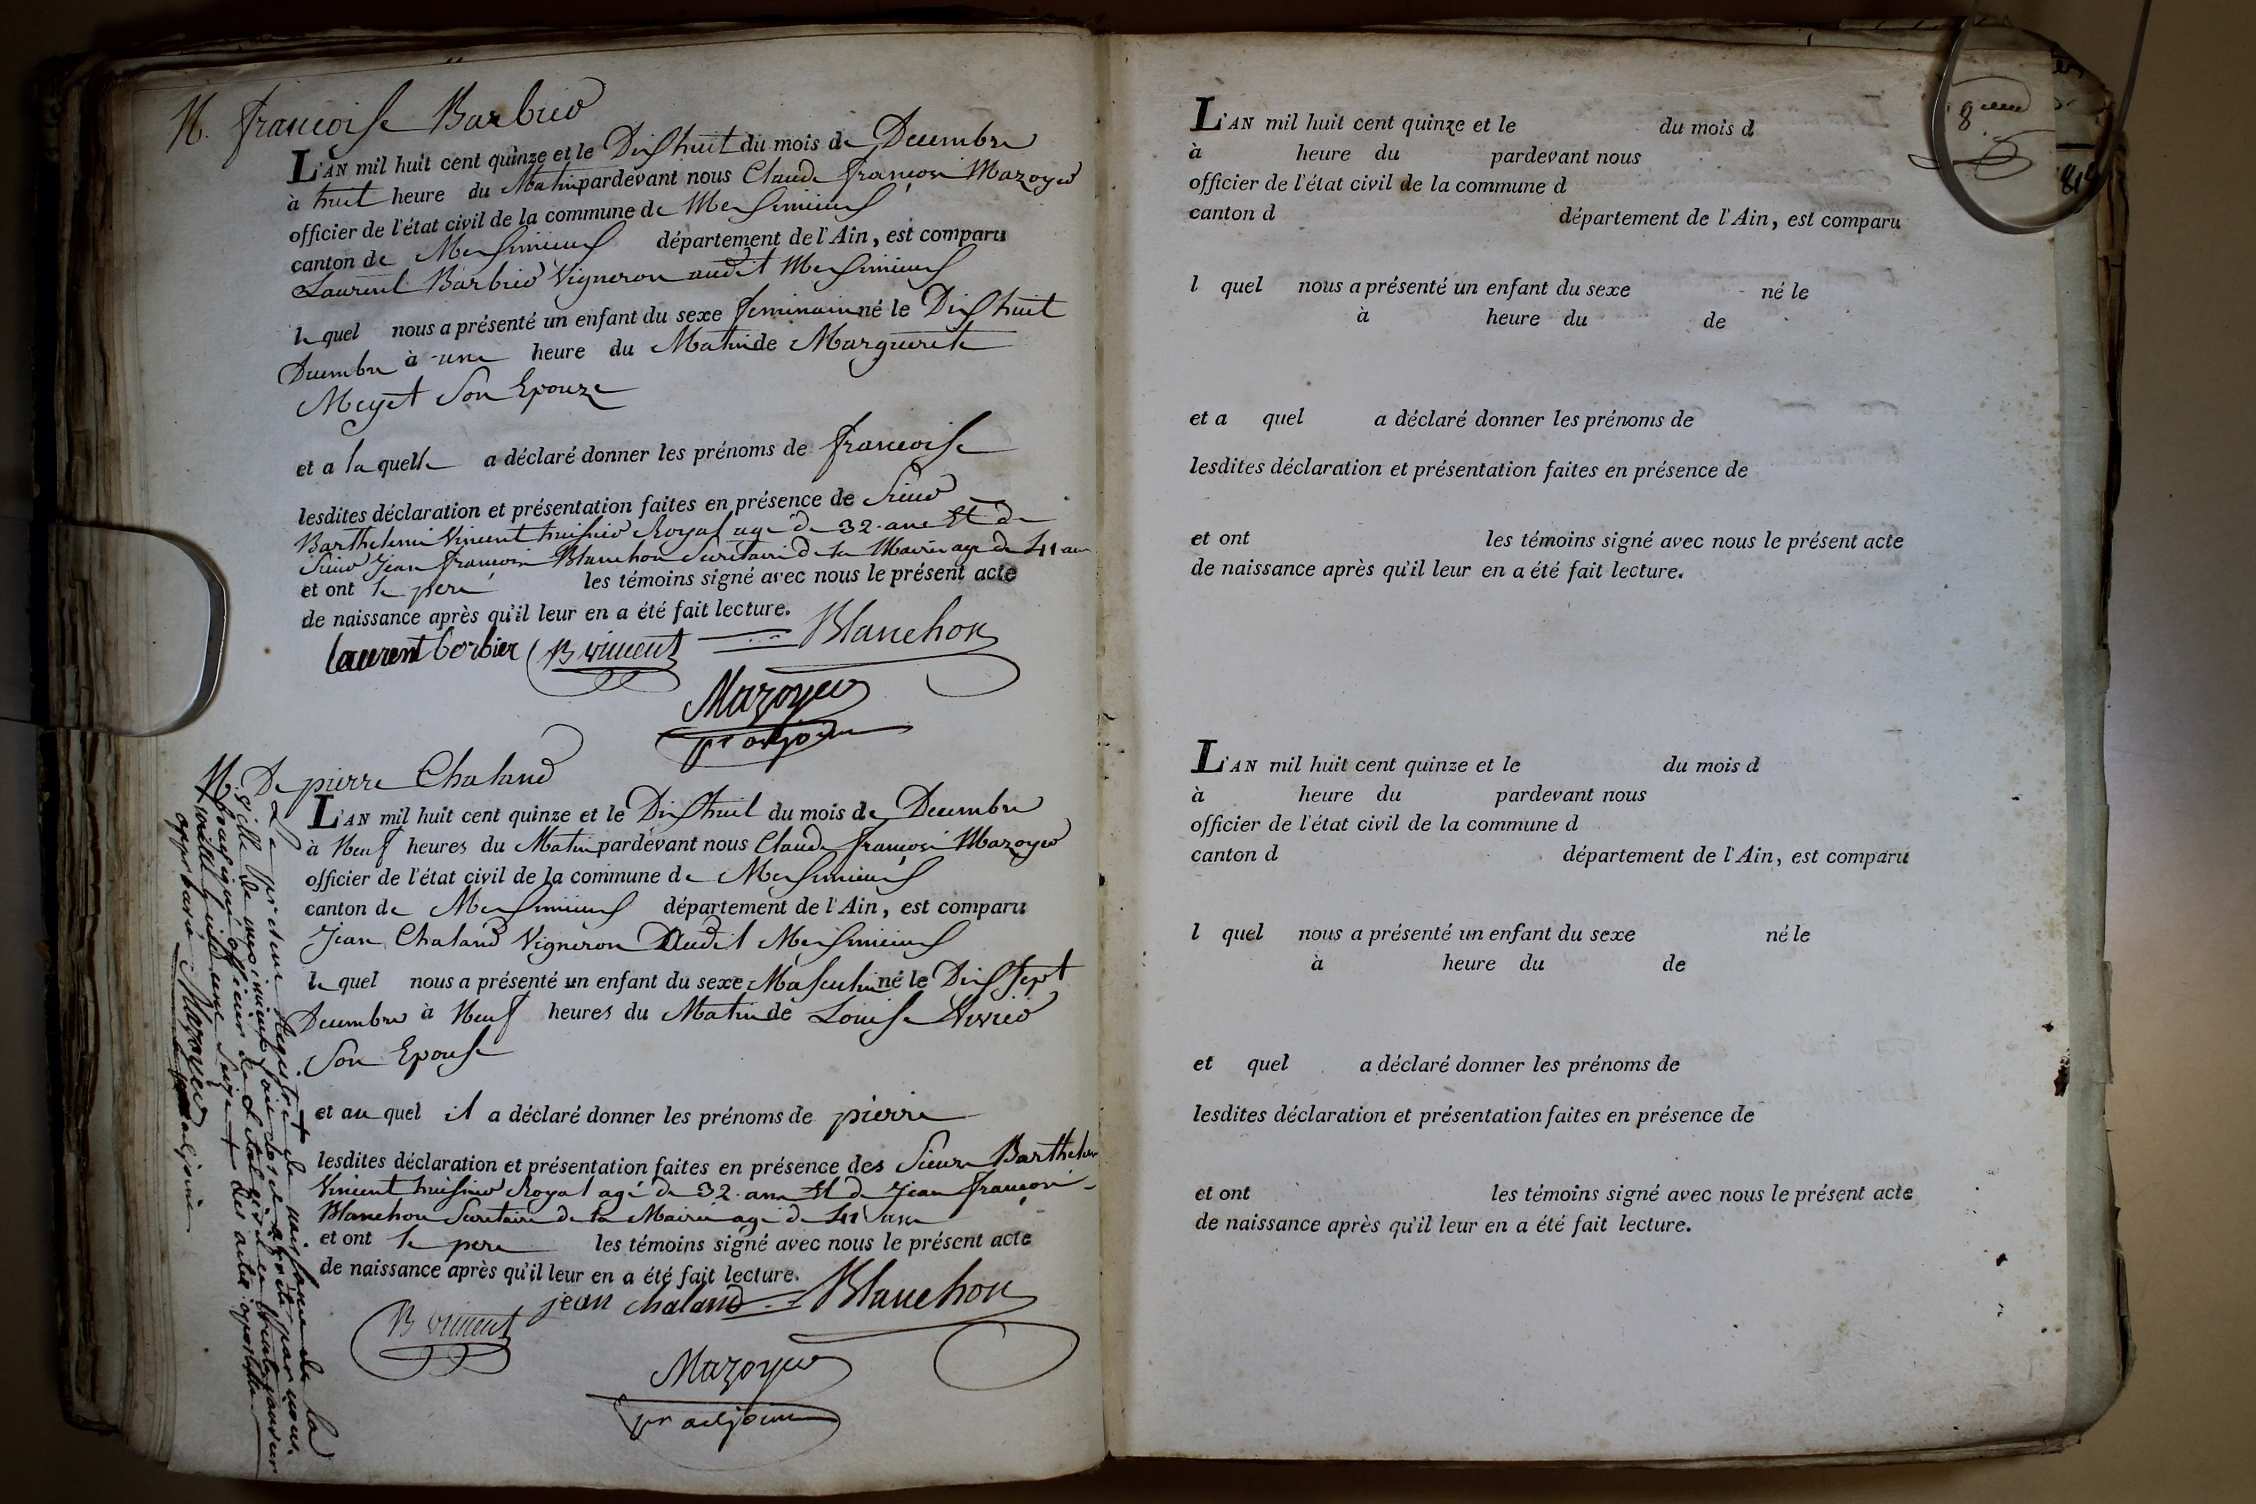 N. francoise Barbier
L'AN mil huit cent quinze et le Dixhuit du mois de Decembre
à huit heure du Matin pardevant nous Claude françois Mazoyer
officier de l'état civil de la commune de Meximieux
canton de Meximieux département de l'Ain, est comparu
Laurent Barbier Vigneron audit Meximieux
le quel nous a présenté un enfant du sexe feminain né le Dixhuit
Decembre à une heure du Matin de Marguerite
Meyet Son Epouze
et a la quelle a déclaré donner les prénoms de francoise
lesdites déclaration et présentation faites en présence de Sieur
Barthelemi Vincent huissier Royal agé de 32 ans Et de
Sieur Jean francois Blanchon Secrétaire de la Mairie age de 41 ans
et ont le pere les témoins signé avec nous le présent acte
de naissance après qu'il leur en a été fait lecture.
laurent borbier B vincent Blanchon
Mazoyer
pr adjoin
N. De pierre Chaland
L'AN mil huit cent quinze et le Dixhuit du mois de Decembre
à Neuf heures du Matin pardevant nous Claude françois Mazoyer
officier de l'état civil de la commune de Meximieux
canton de Meximieux département de l'Ain, est comparu
Jean Chaland Vigneron Audit Meximieux
le quel nous a présenté un enfant du sexe Masculin né le Dixsept
Decembre à Neuf heures du Matin de Louise
Son Epouse
et au quel il a déclaré donner les prénoms de pierre
lesdites déclaration et présentation faites en présence des Sieurs Barthelemi
Vincent huissier Royal agé de 32 ans Et de Jean françois
Blanchon Secretaire de la Mairie agé de 41 ans
et ont le pere les témoins signé avec nous le présent acte
de naissance après qu'il leur en a été fait lecture.
jean chaland Blanchon
B vincent
Mazoyer
pr adjoin
Le present Registre de naissance de la
ville de meximieux clos et arrêté par nous
soussigné officier de l'Etat civil
mille huit cent Seize des actes
approuvé Mazoyer
adjoint
8
815
L'AN mil huit cent quinze et le du mois d
à heure du pardevant nous
officier de l'état civil de la commune d
canton d département de l'Ain, est comparu
l quel nous a présenté un enfant du sexe né le
à heure du de
et a quel a déclaré donner les prénoms de
lesdites déclaration et présentation faites en présence de
et ont les témoins signé avec nous le présent acte
de naissance après qu'il leur en a été fait lecture.
L'AN mil huit cent quinze et le du mois d
à heure du pardevant nous
officier de l'état civil de la commune d
canton d département de l'Ain, est comparu
l quel nous a présenté un enfant du sexe né le
à heure du de
et quel a déclaré donner les prénoms de
lesdites déclaration et présentation faites en présence de
et ont les témoins signé avec nous le présent acte
de naissance après qu'il leur en a été fait lecture.